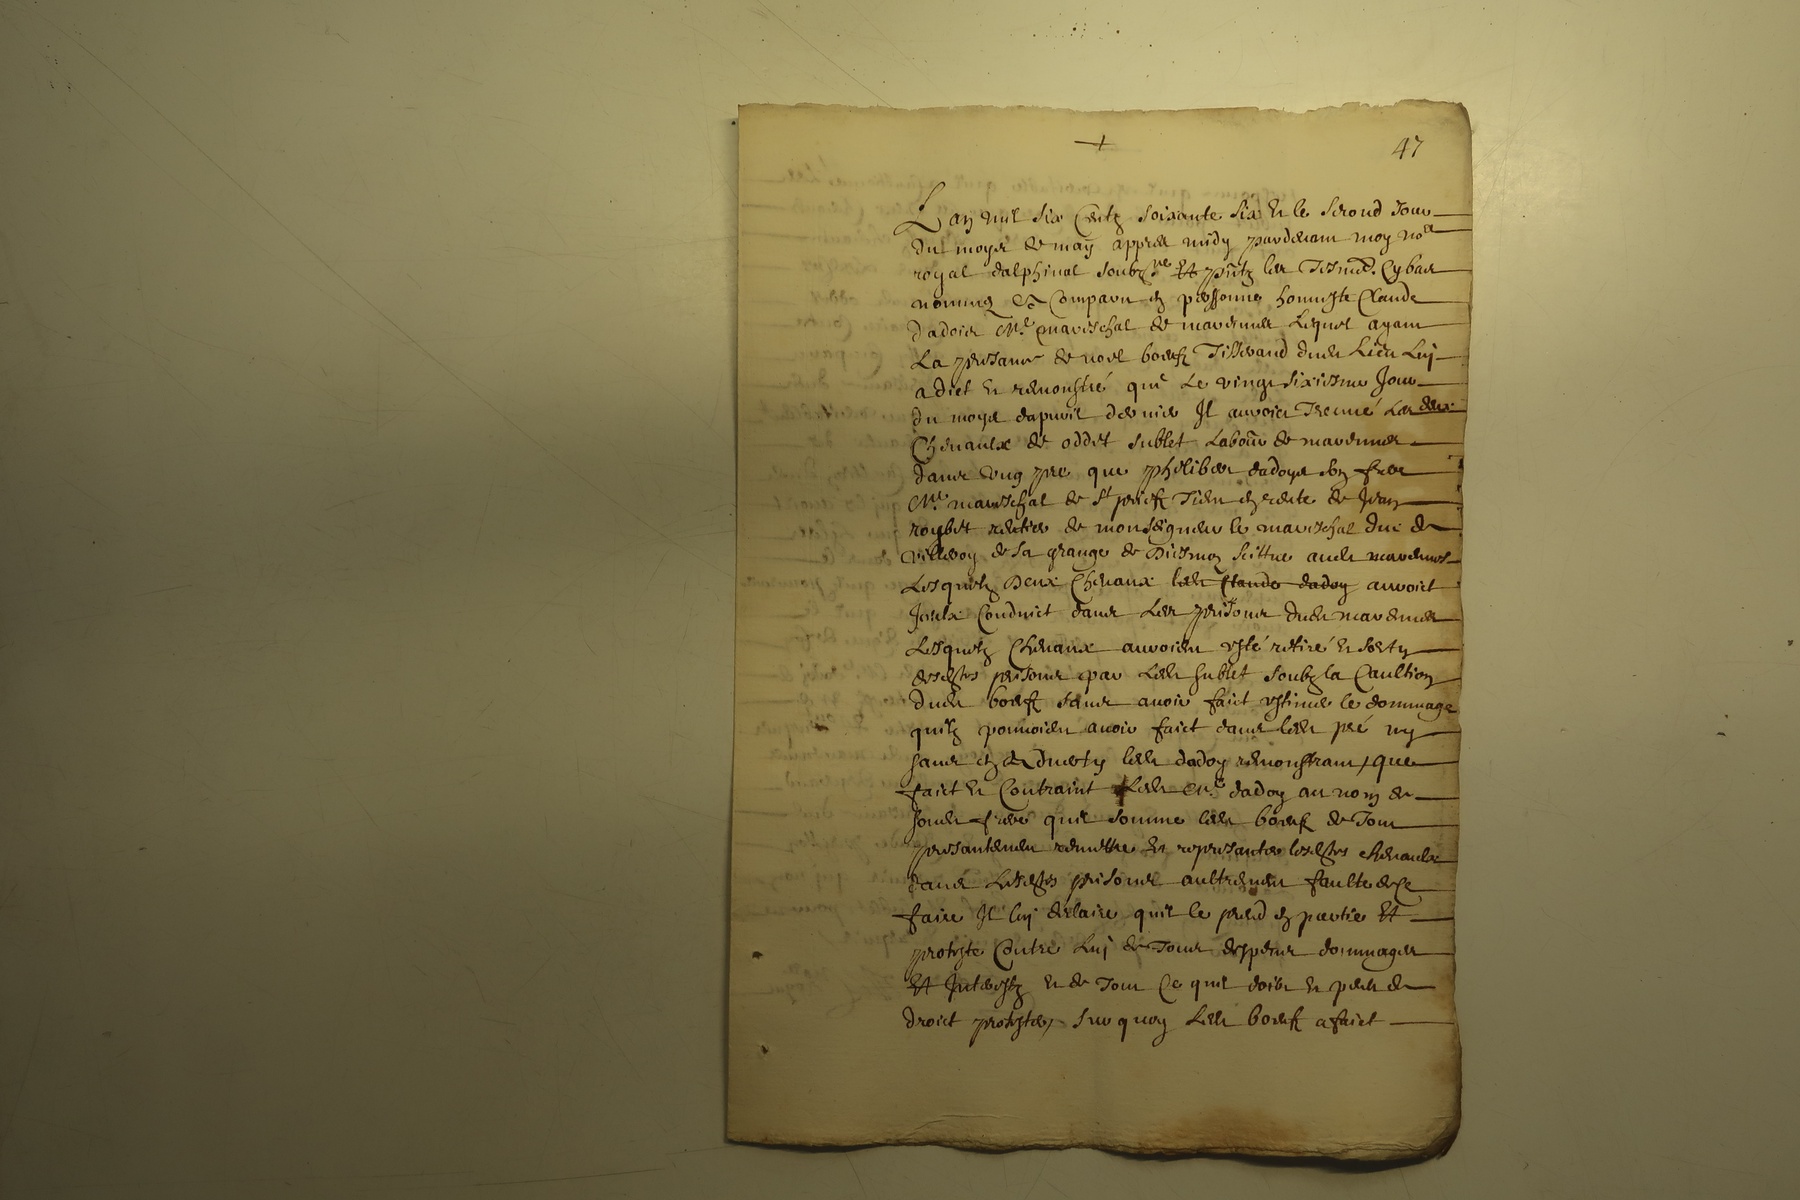 47
Lan mil six Centz soixante six et le second Jour
du moys de may appres midy pardevant moy no.re
royal dalphinal soubz.ne et pntz les Tesmo.
nommez Est Comparu en personne honneste Claude
dadoie M.e mareschal de marennes Lequel ayant
La presance de noel boeuf Tisserand dud Lieu Luy
a dict et remonstré que Le vingt sixiesme Jour
du moys dapvril dernier Il auroict Treuvé Les deux
Chevaulx de oddet sublet Labour de marennes
dans ung pré que philiber dadoye son frere
M.e mareschal de St Tient en rente de Jean
roybet rentier de monseigneur le mareschal duc de
villeroy de sa grange de scittue aud marennes
Lesquelz Deux Chevaux led Claude dadoy auroict
Iceulx Conduict dans Les prisons dud marennes
Lesquelz Chevaux auroient esté retiré et sorty
desdites prisons par Led sublet soubz la Caultion
dud boeuf sans avoir faict estimer le dommage
quilz pouvoient avoir faict dans led pré ny
sans en adverty led dadoy remonstrant, que
faict et Contraint Led M.e dadoy au nom de
sond frere quil somme led boeuf de Tout
presantement remettre et representer lesdites chevaulx
dans Lesdites prisons aultrement faulte de Ce
faire Il luy declaire quil le prend en partie et
proteste Contre Luy de Tous despens dommages
et Interestz et de Tout Ce quil doibt et peult de
droict protester, sur quoy Led boeuf a faict